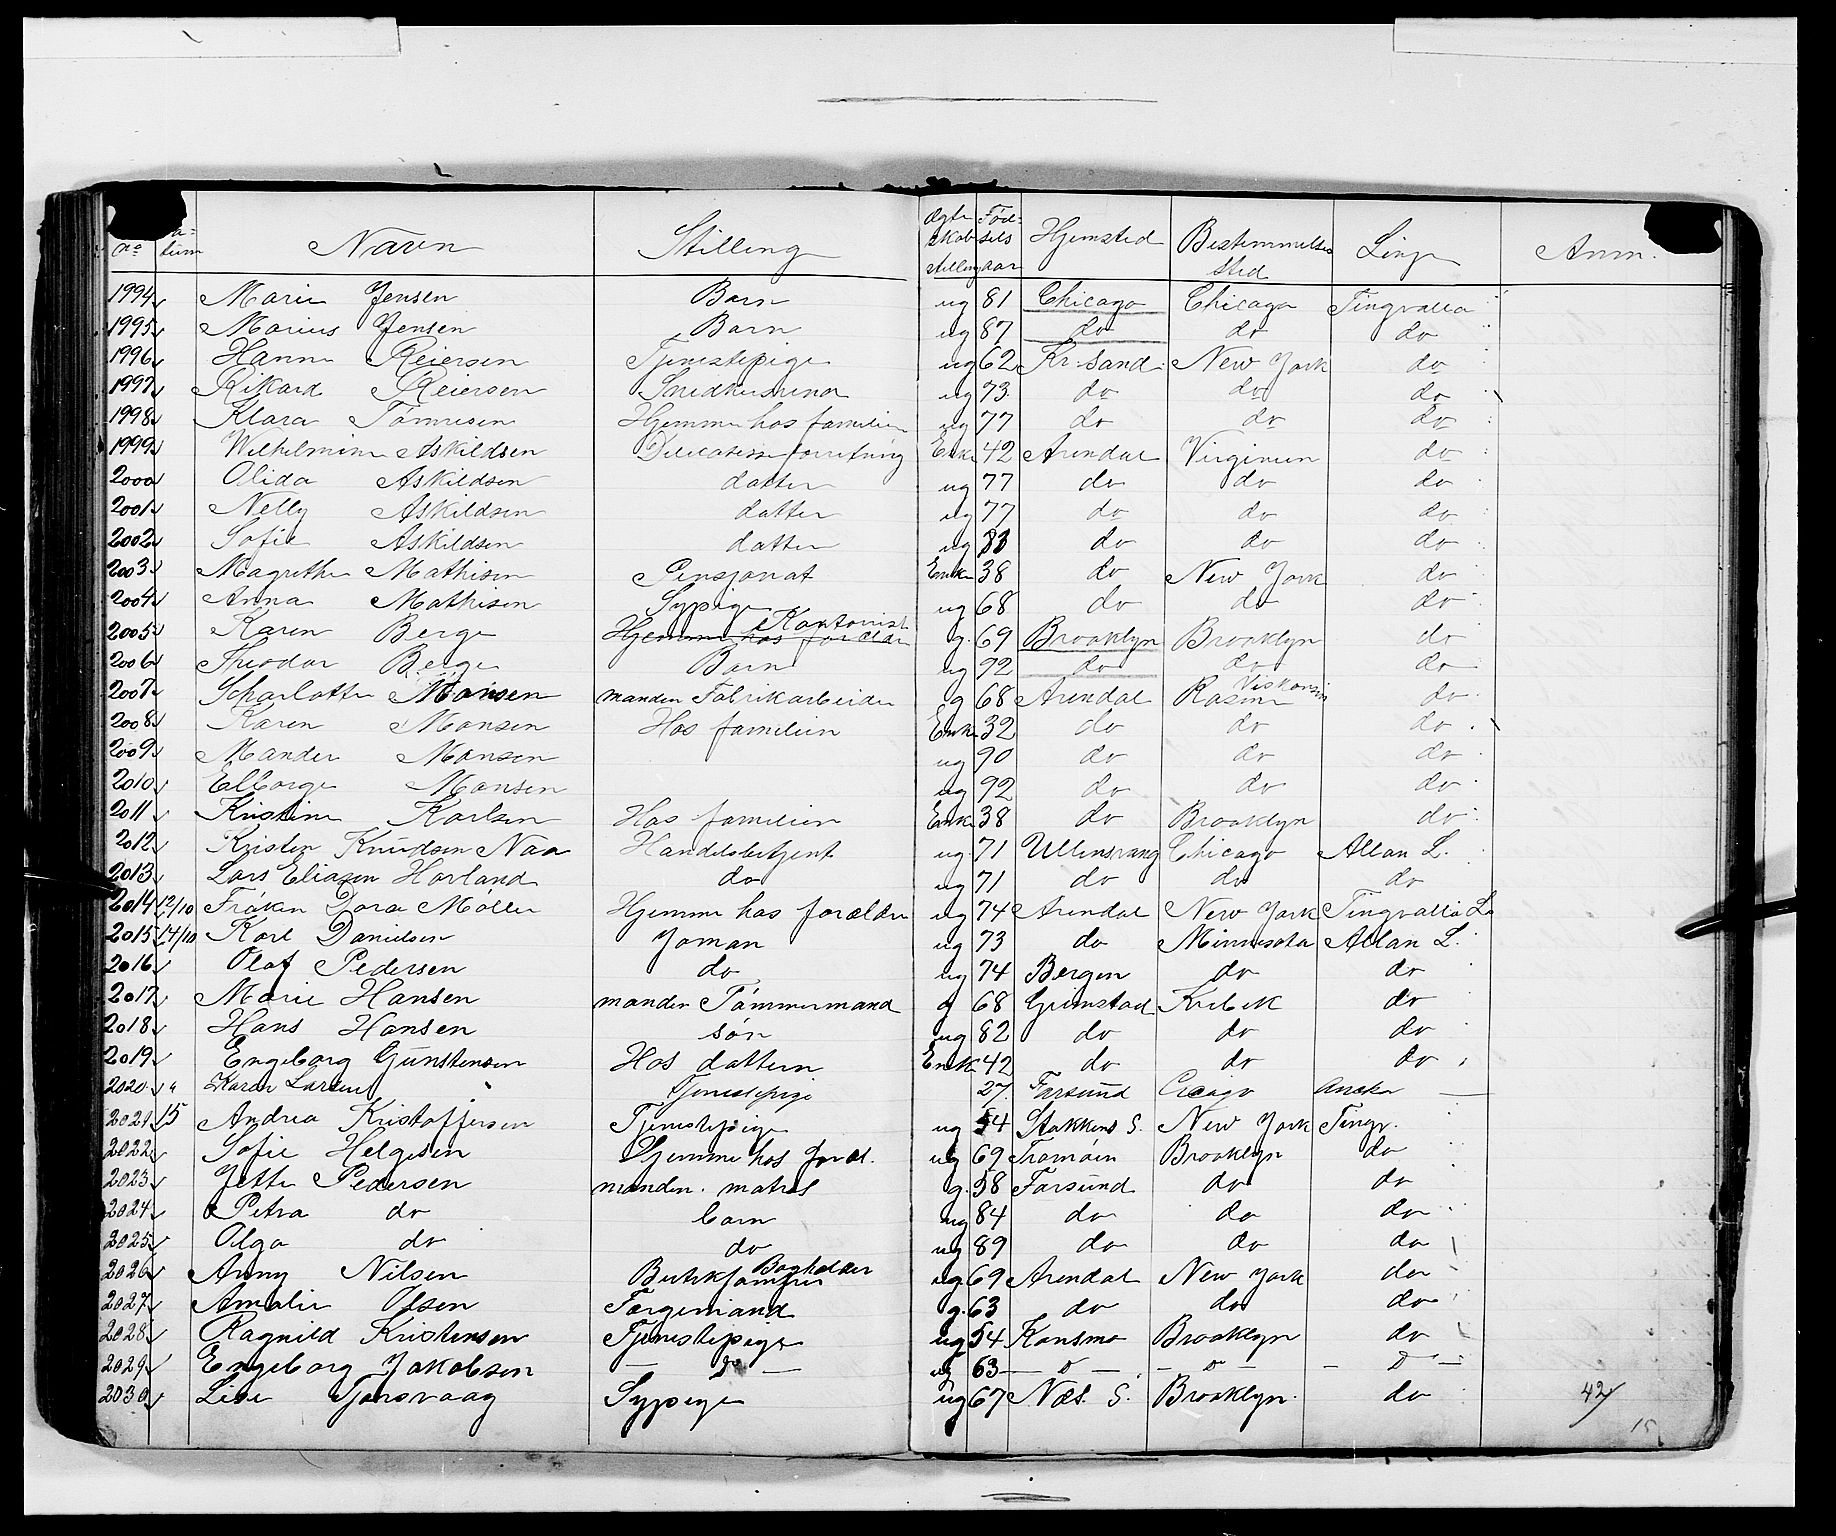 No Datum Navn Stilling Ægteskabstilling Fødselsaar Hjemsted Bestemmelsessted Linje Anm.
1994 Marie Jensen Barn ug 81 Chicago Chicago Tingvalla
1995 Marius Jensen Barn ug 87 do do do
1996 Hanne Reiersen Tjenestepige ug 62 Kr.sand New York do
1997 Rikard Reiersen ug 73 do do do
1998 Klara Tönnesen Hjemme hos familien ug 77 do do do
1999 Wilhelmine Askildsen Enke 42 Arendal Virginien do
2000 Olida Askildsen datter ug 77 do do do
2001 Nelly Askildsen datter ug 77 do do do
2002 Sofie Askildsen datter ug 83 do do do
2003 Magrethe Mathisen Pensjonat Enke 38 do New York do
2004 Anna Mathisen Sypige ug 68 do do do
2005 Karen Berge Hjemme hos forældre Kontorist g. 69 Brooklyn Brooklyn do
2006 Theodor Berge Barn ug 92 do do do
2007 Scharlotte Monsen manden Fabrikarbeider g 68 Arendal Rasine Viskonsin do
2008 Karen Monsen Hos familien Enke 32 do do do
2009 Mander Monsen ug 90 do do do
2010 Elborge Monsen ug 92 do do do
2011 Kristine Karlsen Hos familien Enke 38 do Brooklyn do
2012 Kristen Knudsen Naa Handelsbetjent ug 71 Ullensvang Chicago Allan L.
2013 Lars Eliasen Horland do ug 71 do do do
2014 12/10 Fröken Dora Möller Hjemme hos forældre ug 74 Arendal New York Tingvalla L
2015 14/10 Karl Danielsen Joman ug 73 do Minnesota Allan L.
2016 Olaf Pedersen do ug 74 Bergen do do
2017 Marie Hansen manden Tömmermand g 68 Grimstad Krebek do
2018 Hans Hansen sön ug 82 do do do
2019 Engeborg Gunstensen Hos datteren Enke 42 do do do
2020 " Karen Larsen Tjenestepige 27. Farsund Cicago Anchor
2021 15 Andrea Kristoffersen Tjenestepige ug 54 Stokkens S. New York Tingv.
2022 Sofie Helgesen Hjemme hos foræl. ug 69 Tromöen Brooklyn do
2023 Jette Pedersen manden. matros g. 58 Farsund do do
2024 Petra do barn ug 84 do do do
2025 Olga do do ug 89 do do do
2026 Anny Nilsen Butikjomfru Bogholder ug 69 Arendal New York do
2027 Amalie Olsen Færgemand g. 63 do do do
2028 Ragnild Kristensen Tjenestepige ug 54 Konsmo Brooklyn do
2029 Engeborg Jakobsen — " — ug 63 — o — — o — — o —
2030 Lise Tjorsvaag Sypige ug 67 Næs. S. Brooklyn. do
42
15